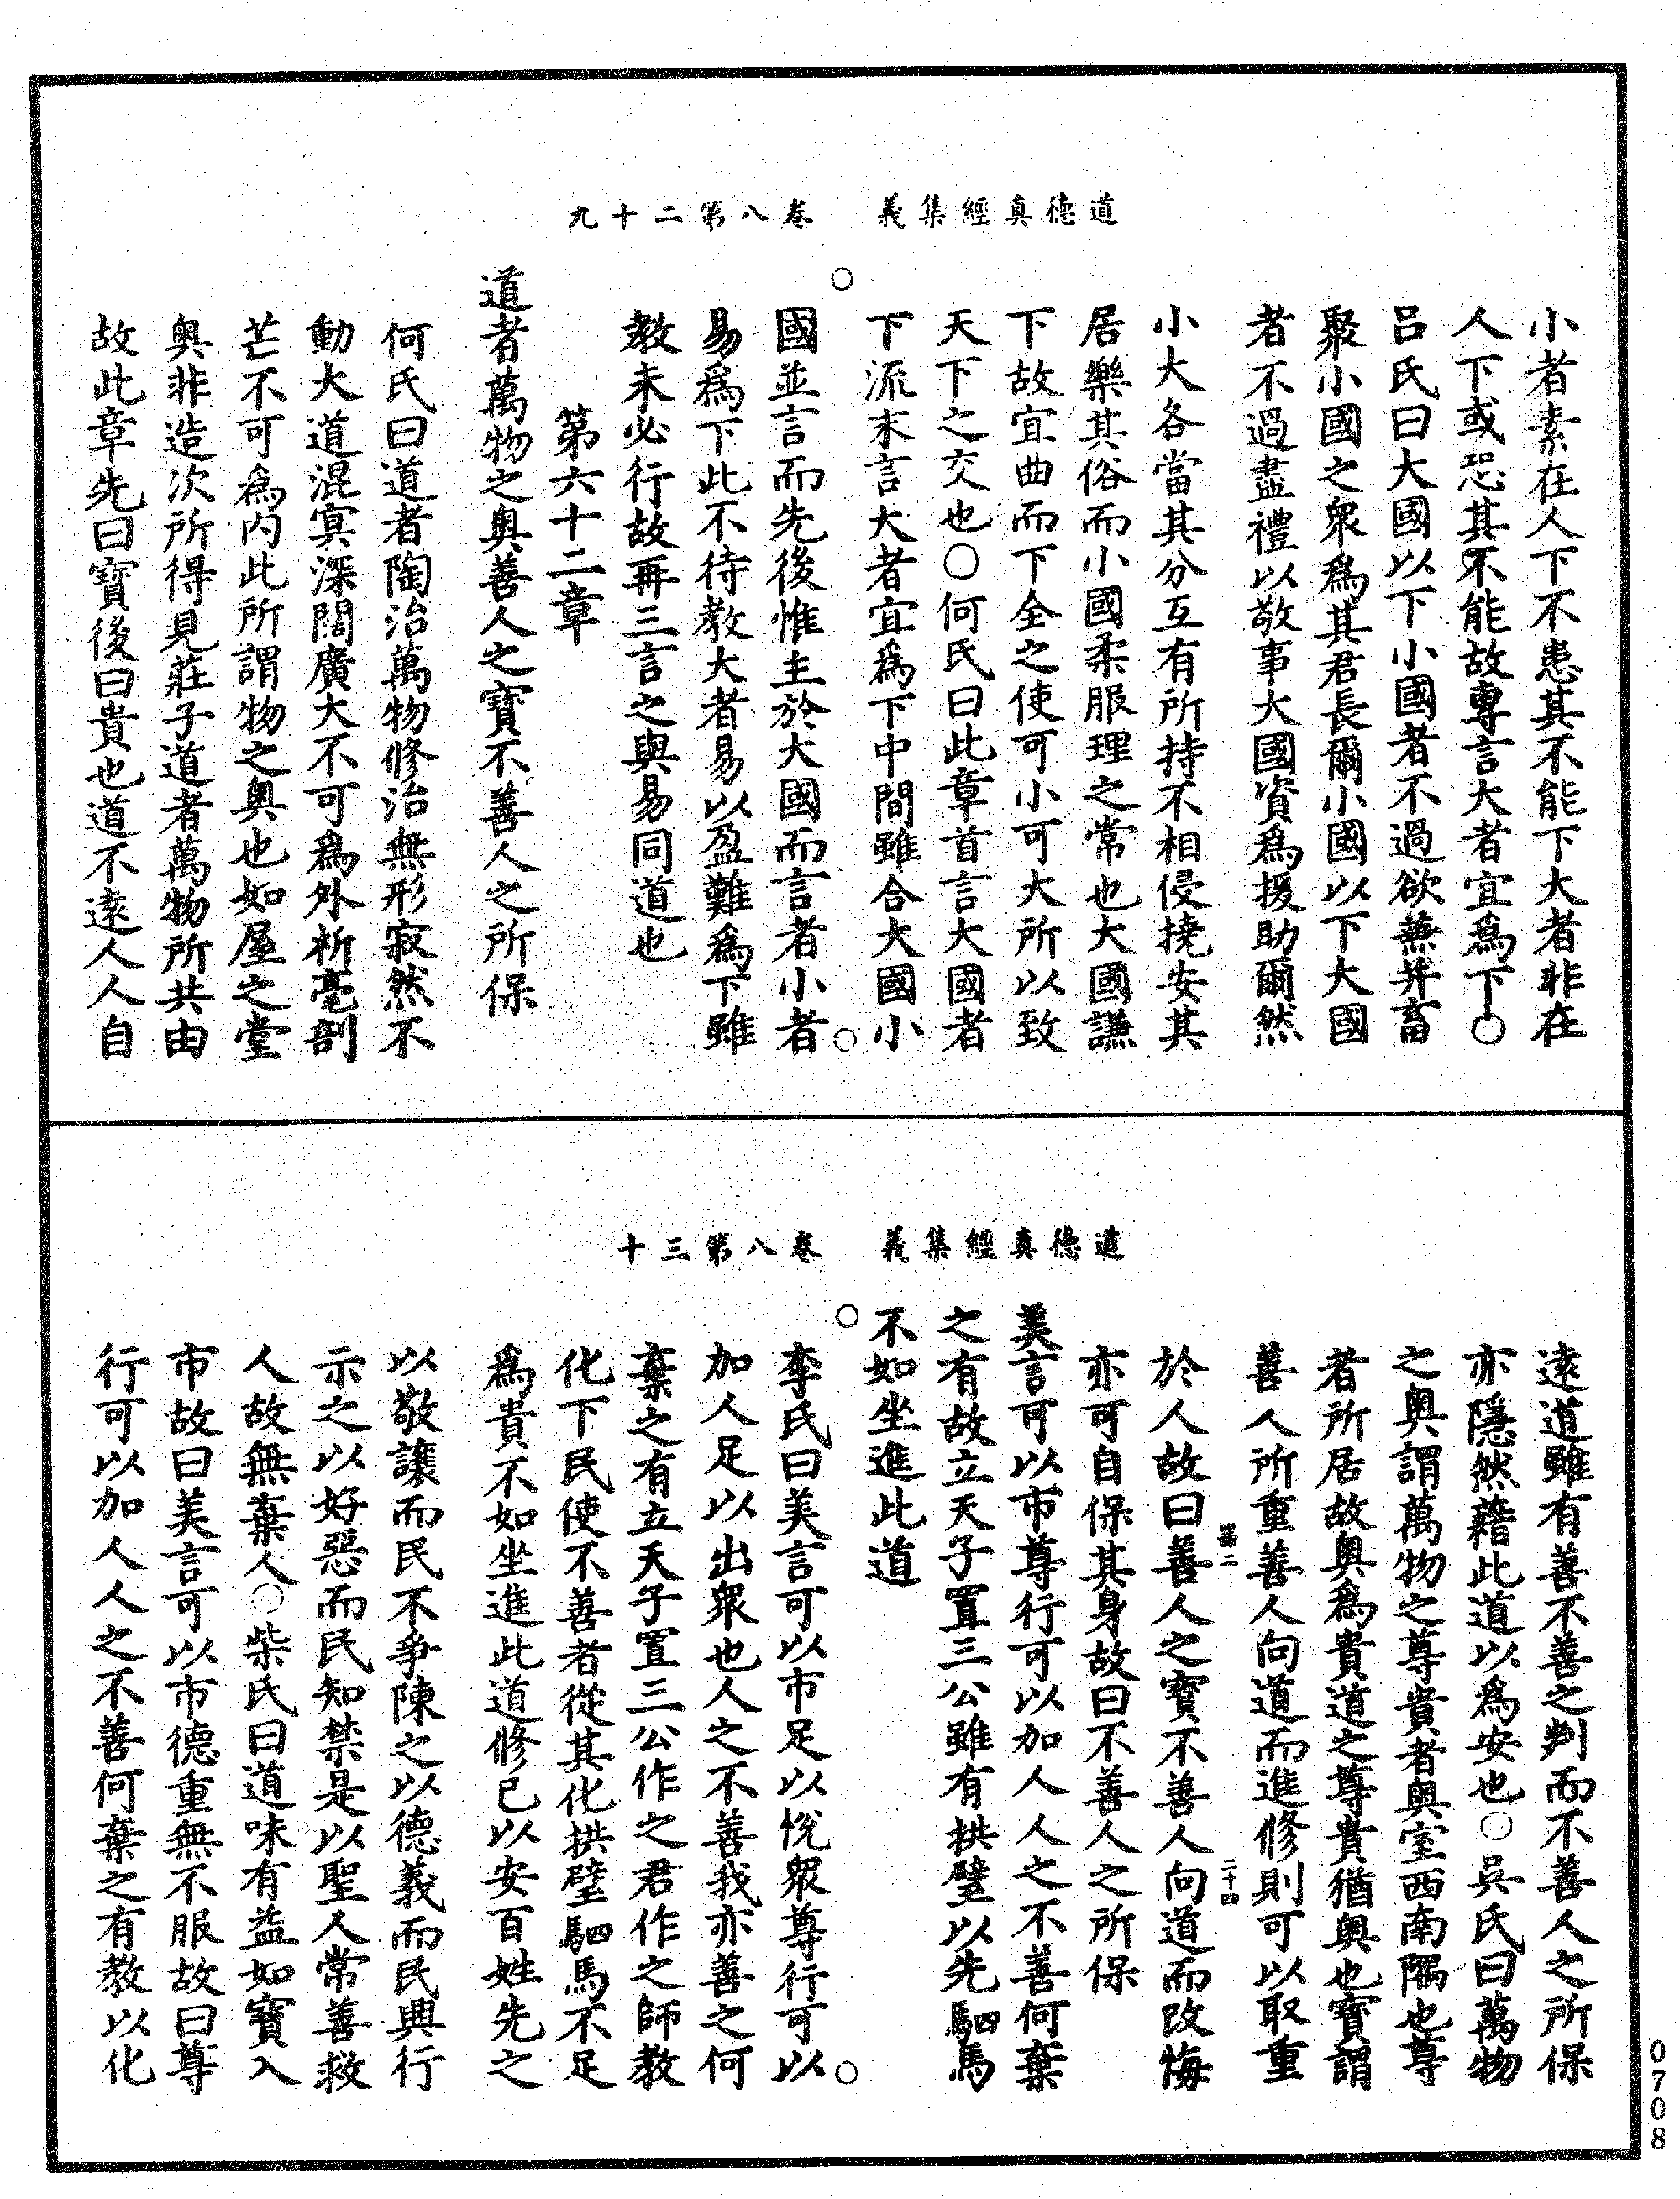 道德真經集義　卷八第二十九
小者素在人下不患其不能下大者非在
人下或恐其不能故專言大者宜爲下○
呂氏曰大國以下小國者不過欲兼并畜
聚小國之衆爲其君長爾小國以下大國
者不過盡禮以敬事大國資爲援助爾然
小大各當其分互有所持不相侵撓安其
居樂其俗而小國柔服理之常也大國謙
下故宜曲而下全之使可小可大所以致
天下之交也○何氏曰此章首言大國者
下流末言大者宜爲下中間雖合大國小
國並言而先後惟主於大國而言者小者
易爲下此不待教大者易以盈難爲下雖
教未必行故再三言之與易同道也
第六十二章
道者萬物之奥善人之寶不善人之所保
何氏曰道者陶冶萬物修治無形寂然不
動大道混冥深闊廣大不可爲外析毫剖
芒不可爲内此所謂物之奥也如屋之堂
奥非造次所得見莊子道者萬物所共由
故此章先曰寶後曰貴也道不遠人人自
道德真經集義　卷八第三十
遠道雖有善不善之判而不善人之所保
亦隱然藉此道以爲安也○吳氏曰萬物
之奥謂萬物之尊貴者奥室西南隅也尊
者所居故奥爲貴道之尊貴猶奥也寶謂
善人所重善人向道而進修則可以取重
二十四
於人故曰善人之寶不善人向道而改悔
亦可自保其身故曰不善人之所保
美言可以市尊行可以加人人之不善何棄
之有故立天子置三公雖有拱璧以先駟馬
不如坐進此道
李氏曰美言可以市足以悅衆尊行可以
加人足以出衆也人之不善我亦善之何
棄之有立天子置三公作之君作之師教
化下民使不善者從其化拱璧駟馬不足
爲貴不如坐進此道修已以安百姓先之
以敬讓而民不爭陳之以德義而民興行
示之以好惡而民知禁是以聖人常善救
人故無棄人○柴氏曰道味有益如寶入
市故曰美言可以市德重無不服故曰尊
行可以加人人之不善何棄之有教以化
0708